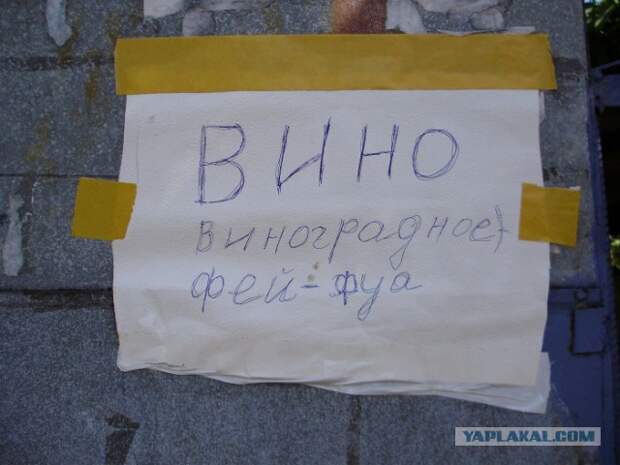 ВИНО
виноградное+
фей-фуа
YAPLAKAL.COM